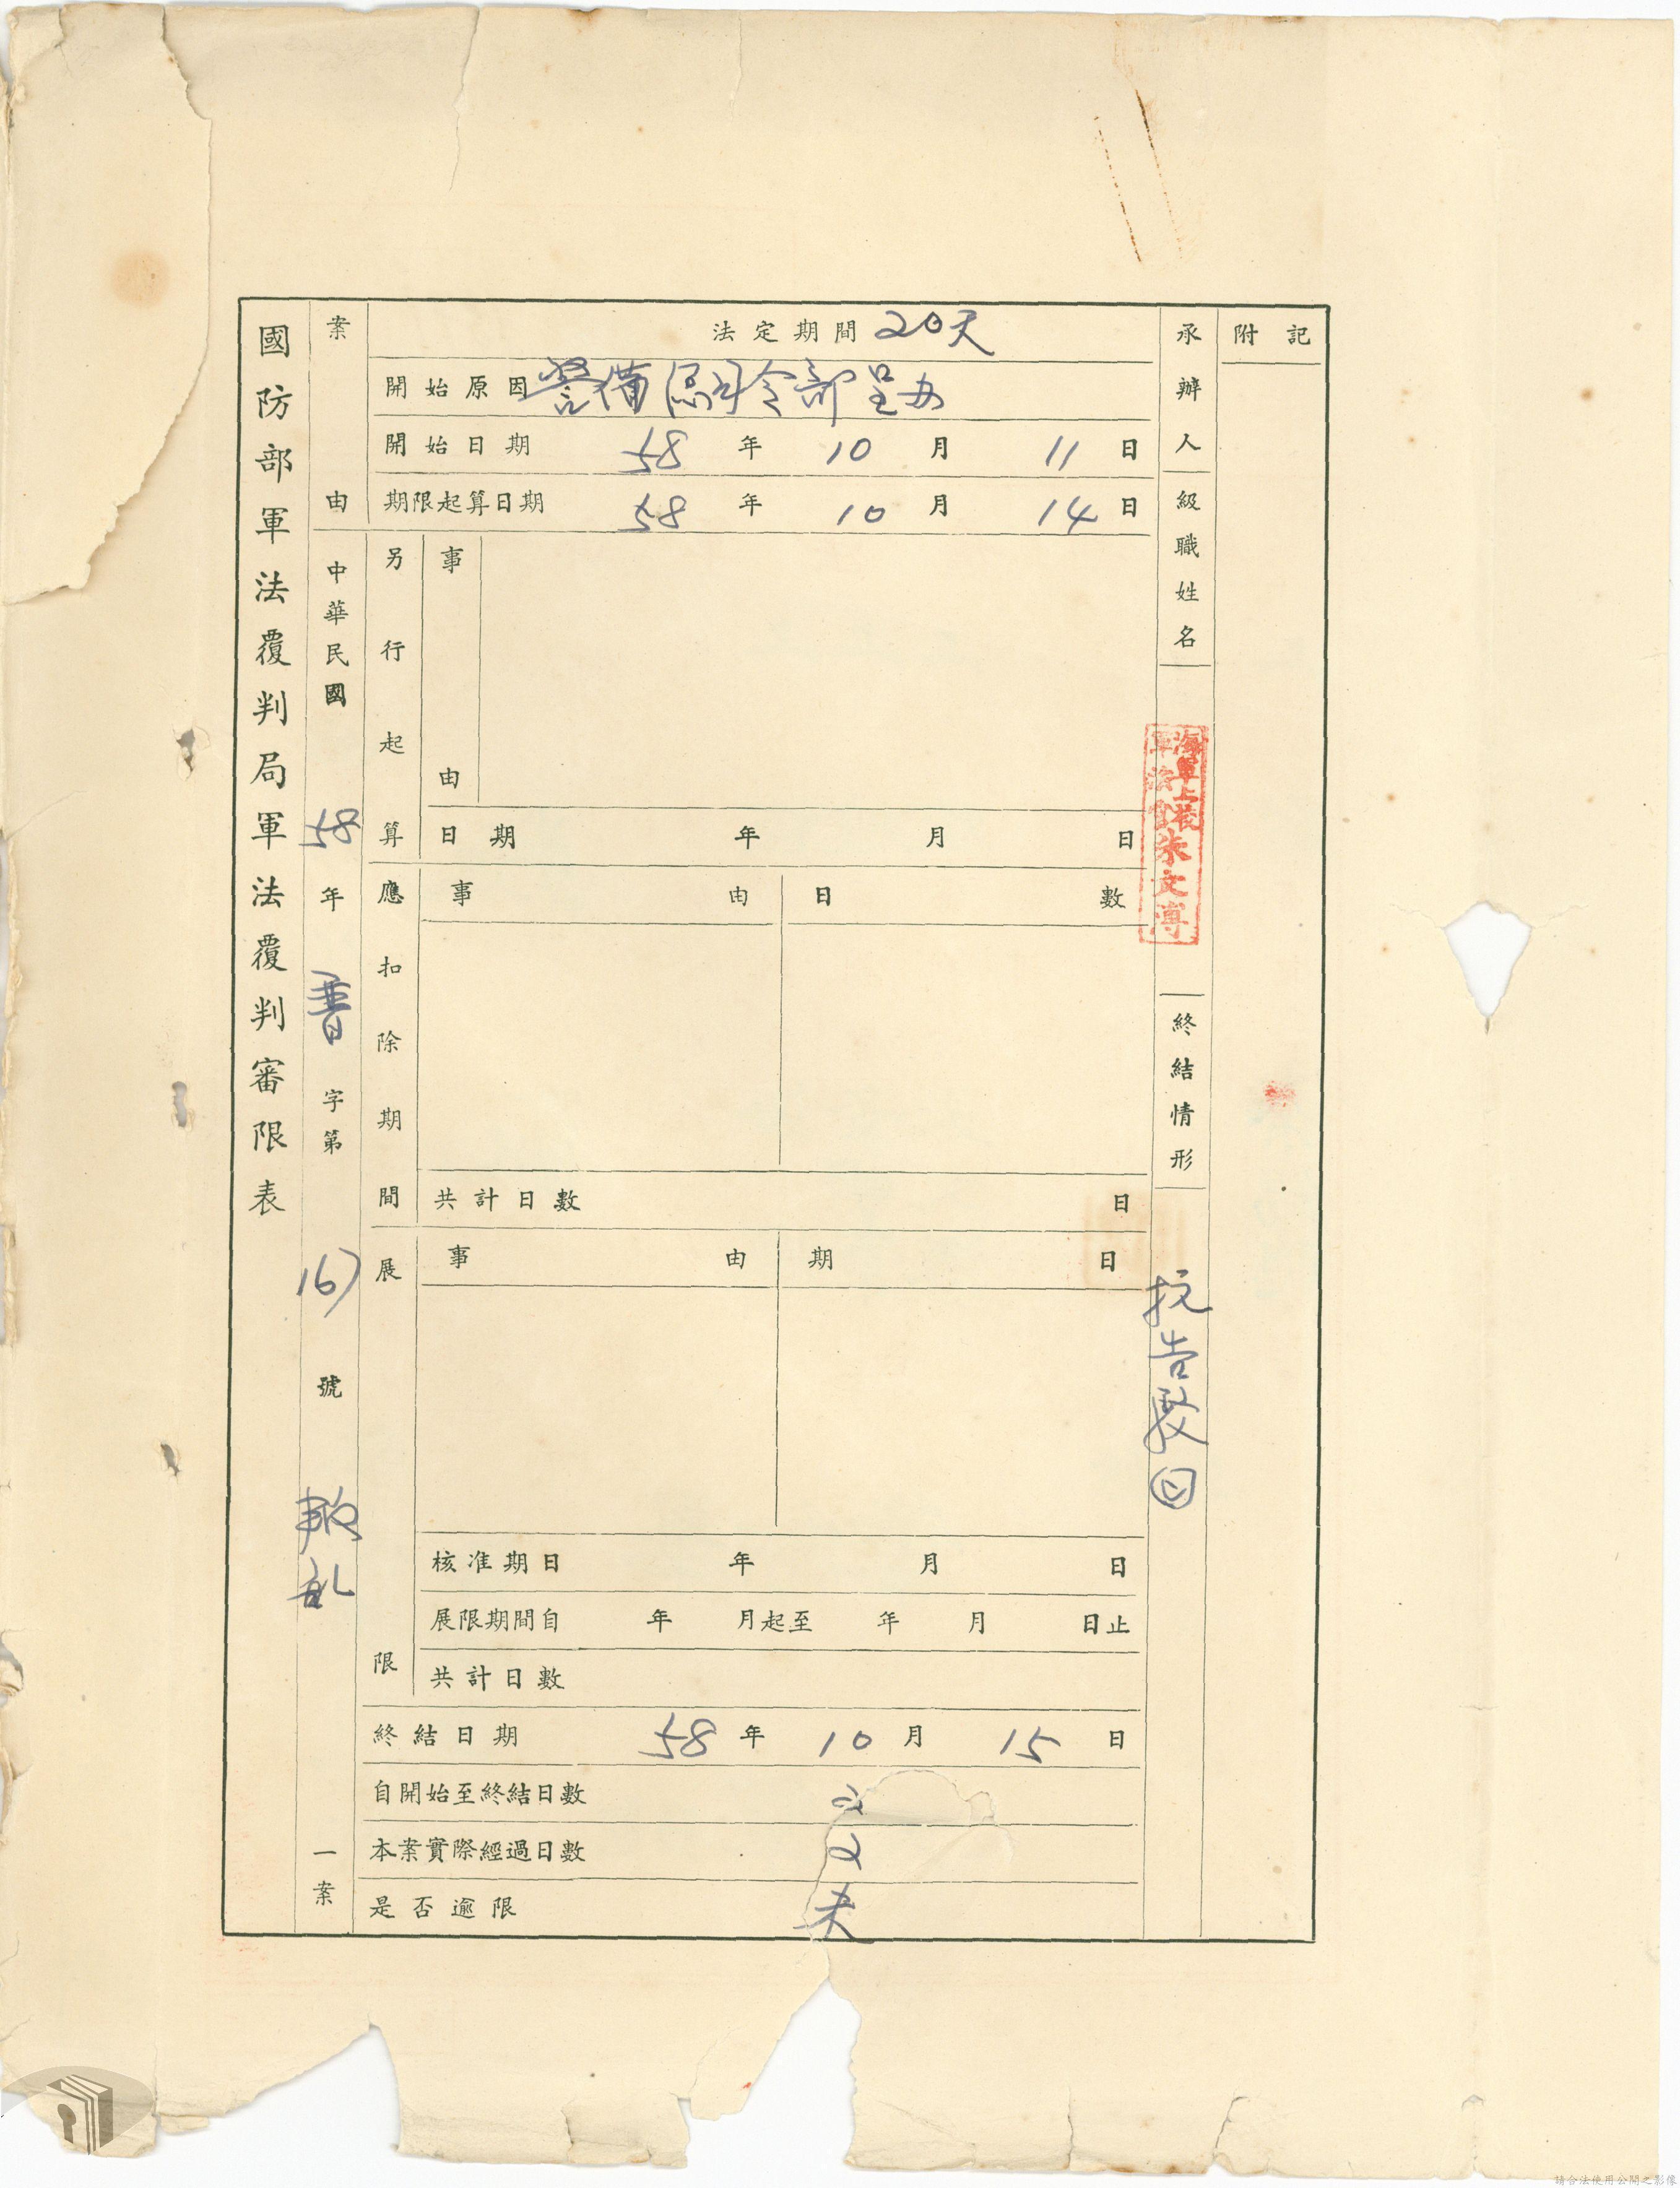 國防部軍法覆判局軍法覆判審限表
案由
中華民國58年普字第167號叛乱一案
法定期間 20天
開始原因 警備總司令部呈办
開始日期 58年10月11日
期限起算日期 58年10月14日
另行起算
事由
日期 年 月 日
應扣除期間
事由 日數
共計日數 日
展限
事由 期日
核准期日 年 月 日
展限期間自 年 月起至 年 月 日止
共計日數
終結日期 58年10月15日
自開始至終結日數
本案實際經過日數 2
是否逾限 未
承辦人級職姓名
海軍上校
軍法官 朱文溥
終結情形
抗告駁回
附記
請合法使用公開之影像